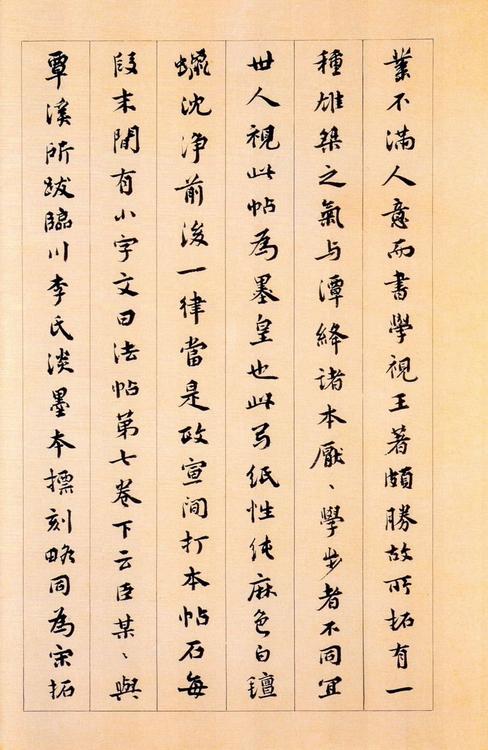 業不滿人意而書學視王著頗勝故所拓有一
種雄桀之氣与潭絳諸本厭、學步者不同宜
世人視此帖為墨皇也此弓紙性純麻色白氊
蠟沈淨前後一律當是政宣间打本帖石每
段末間有小字文曰法帖第七卷下云臣某、與
覃溪所跋臨川李氏淡墨本摽刻略同為宋拓